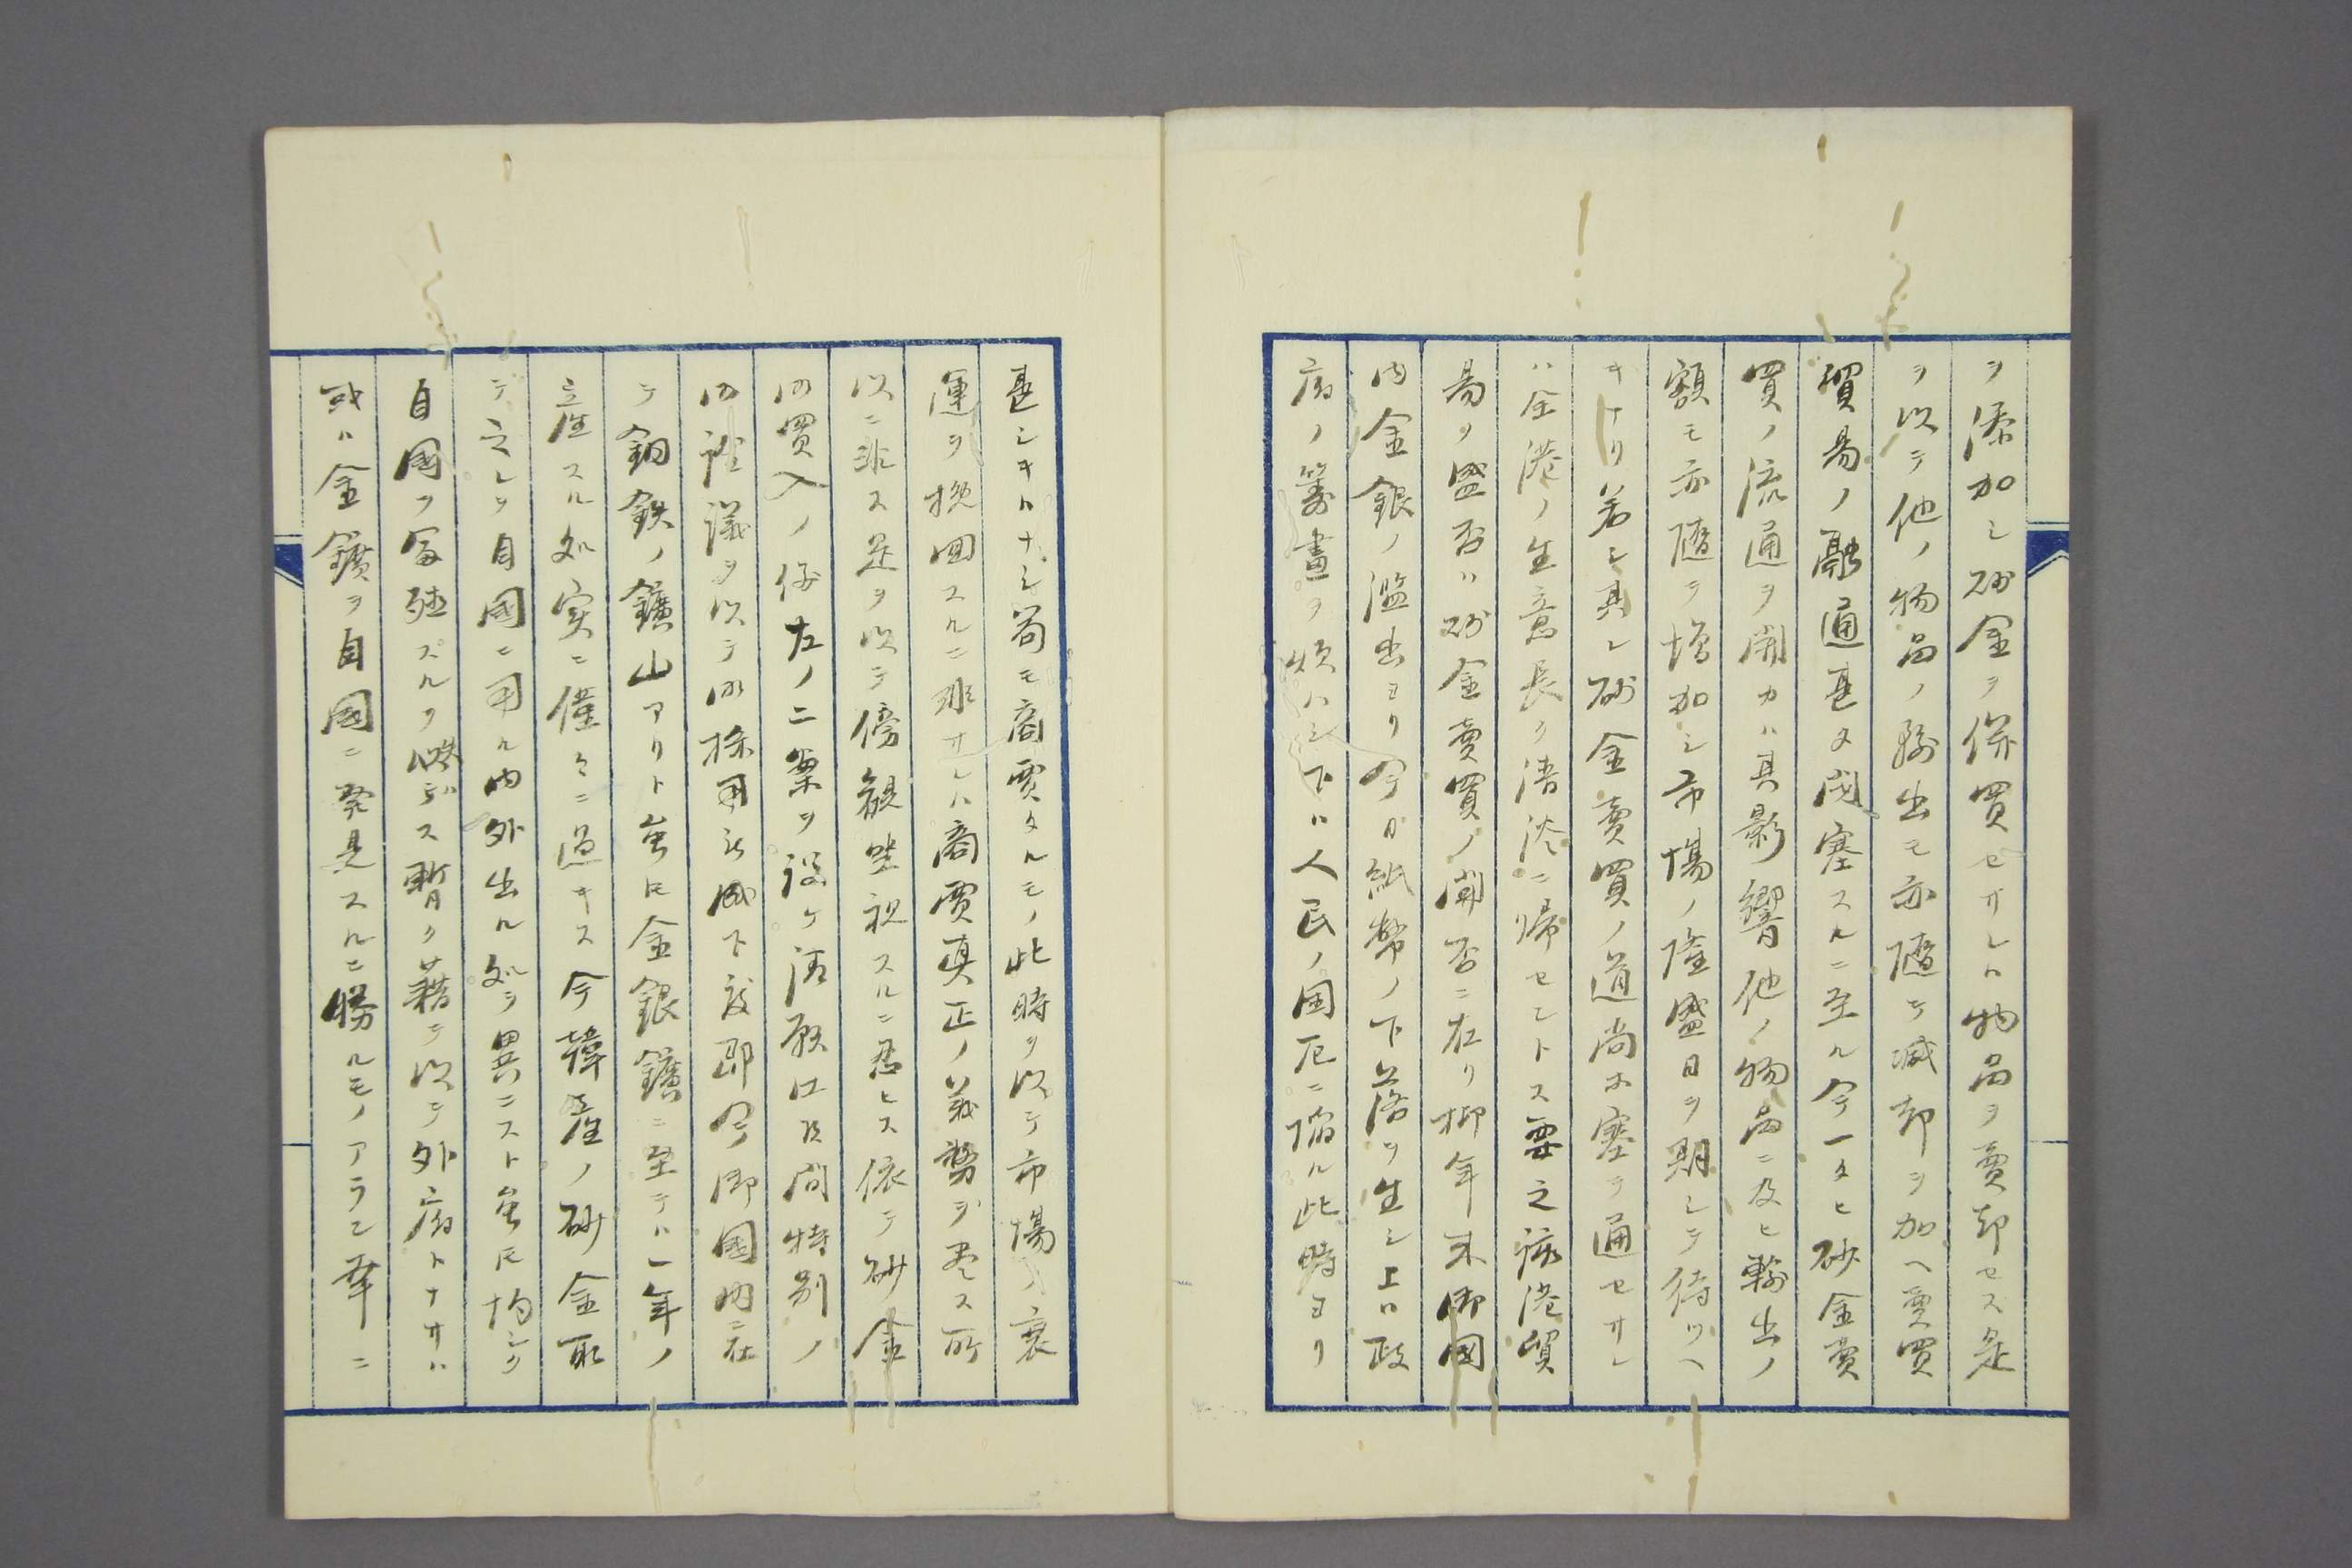 ヲ添加シ砂金ヲ併買セサレハ物品ヲ賣却セス是
ヲ以テ他ノ物品ノ輸出モ亦隨テ減却ヲ加ヘ賣買
貿易ノ融通甚タ閉塞スルニ至ル今一タヒ砂金賣
買ノ流通ヲ開カハ其影響他ノ物品ニ及ヒ輸出ノ
額モ亦隨テ增加シ市場ノ隆盛日ヲ期シテ待ツヘ
キナリ若シ其レ砂金賣買ノ道尚ホ塞テ通セサレ
ハ全港ノ生意長ク湮滅ニ帰セントス要之該港貿
易ノ盛否ハ砂金賣買ノ開否ニ在リ抑年来御國
内金銀ノ濫出ヨリ今日紙幣ノ下落ヲ生シ上ハ政
府ノ籌畫ヲ煩ハシ下ハ人民ノ困厄ニ陥ル此時ヨリ
甚シキハナシ苟モ商賈タルモノ此時ヲ以テ市場ノ衰
運ヲ挽回スルニ非サレハ商賈真正ノ義務ヲ尽ス所
以ニ非ス是ヲ以テ傍観坐視スルニ忍ヒス依テ砂金
御買入ノ儀左ノニ案ヲ設ケ請願仕候間特別ノ
御詮議ヲ以テ御採用被成下度即今御國内ニ在
テ銅鉄ノ鑛山アリト雖モ金銀鑛ニ至テハ一年ノ
産スル処実ニ僅々ニ過キス今韓産ノ砂金取
テ之レヲ自國ニ用ル内外出ル処ヲ異ニスト雖モ均シク
自國ヲ富殖スルヲ
以テ外府トナサハ
或ハ金鑛ヲ自國ニ発見スルニ勝ルモノアラン幸ニ